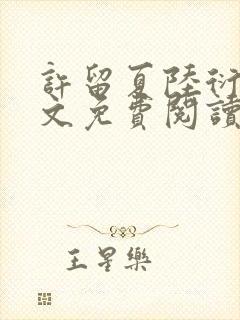 許留夏陸衍
文免費閱讀
王星樂